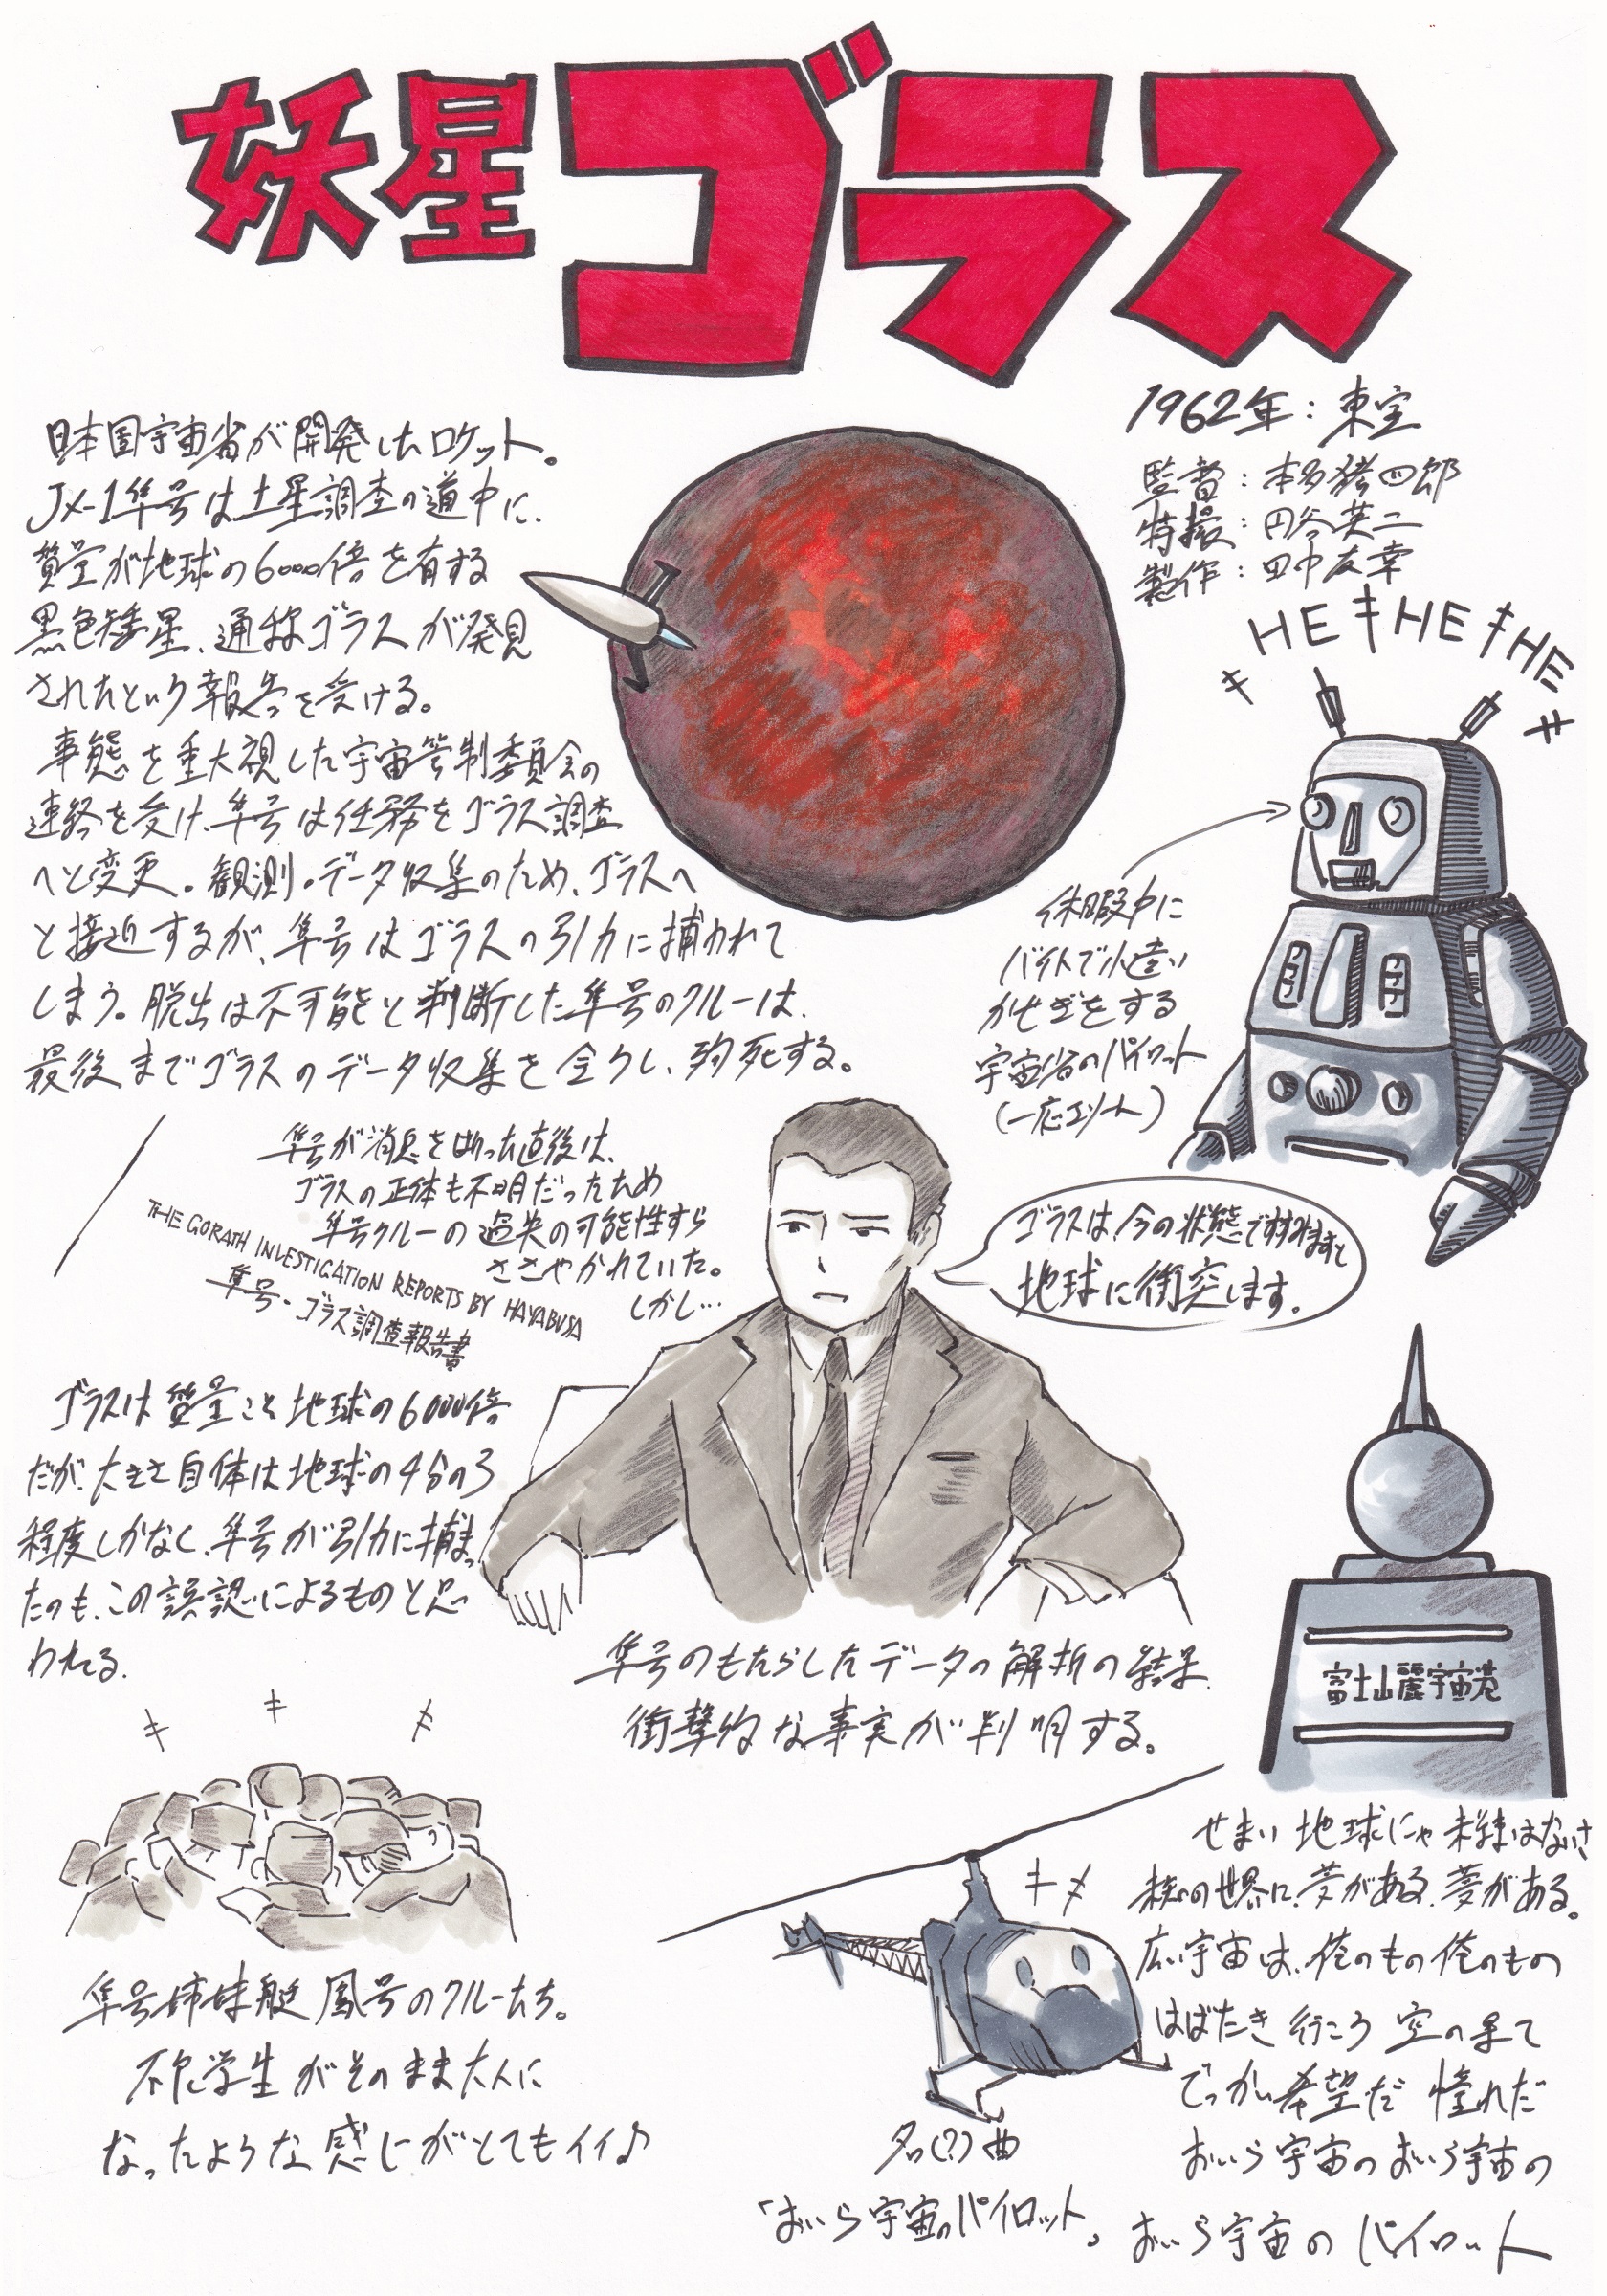 妖星ゴラス
1962年：東宝
監督：本多猪四郎
特撮：円谷英二
製作：田中友幸
日本国宇宙省が開発したロケット。
JX-1隼号は土星調査の道中に、
質量が地球の6000倍を有する
黒色矮星、通称ゴラスが発見
されたという報告を受ける。
事態を重大視した宇宙管制委員会の
連絡を受け、隼号は任務をゴラス調査
へと変更。観測・データ収集のため、ゴラスへ
と接近するが、隼号はゴラスの引力に捕われて
しまう。脱出は不可能と判断した隼号のクルーは、
最後までゴラスのデータ収集を全うし、殉死する。
HEキHEキHE
休暇中に
バイトで小遣い
かせぎをする
宇宙省のパイロット
（一応エリート）
隼号が消息を断った直後は、
ゴラスの正体も不明だったため
隼号クルーの過失の可能性すら
ささやかれていた。
しかし…
THE GORATH INVESTIGATION REPORTS BY HAYABUSA
隼号・ゴラス調査報告書
ゴラスは今の状態ですすみますと
地球に衝突します。
ゴラスは質量こそ地球の6000倍
だが、大きさ自体は地球の4分の3
程度しかなく、隼号が引力に捕まっ
たのも、この誤認によるものと思
われる。
隼号のもたらしたデータの解析の結果、
衝撃的な事実が判明する。
富士山麓宇宙港
キ キ キ
隼号姉妹艇 鳳号のクルーたち。
不良学生がそのまま大人に
なったような感じがとてもイイ♪
キメ
名(?)曲
「おいら宇宙のパイロット」
せまい地球にゃ未練はないさ
未知の世界に夢がある、夢がある。
広い宇宙は、俺のもの俺のもの
はばたき行こう 空の果て
でっかい希望だ 憧れだ
おいら宇宙の おいら宇宙の
おいら宇宙の パイロット